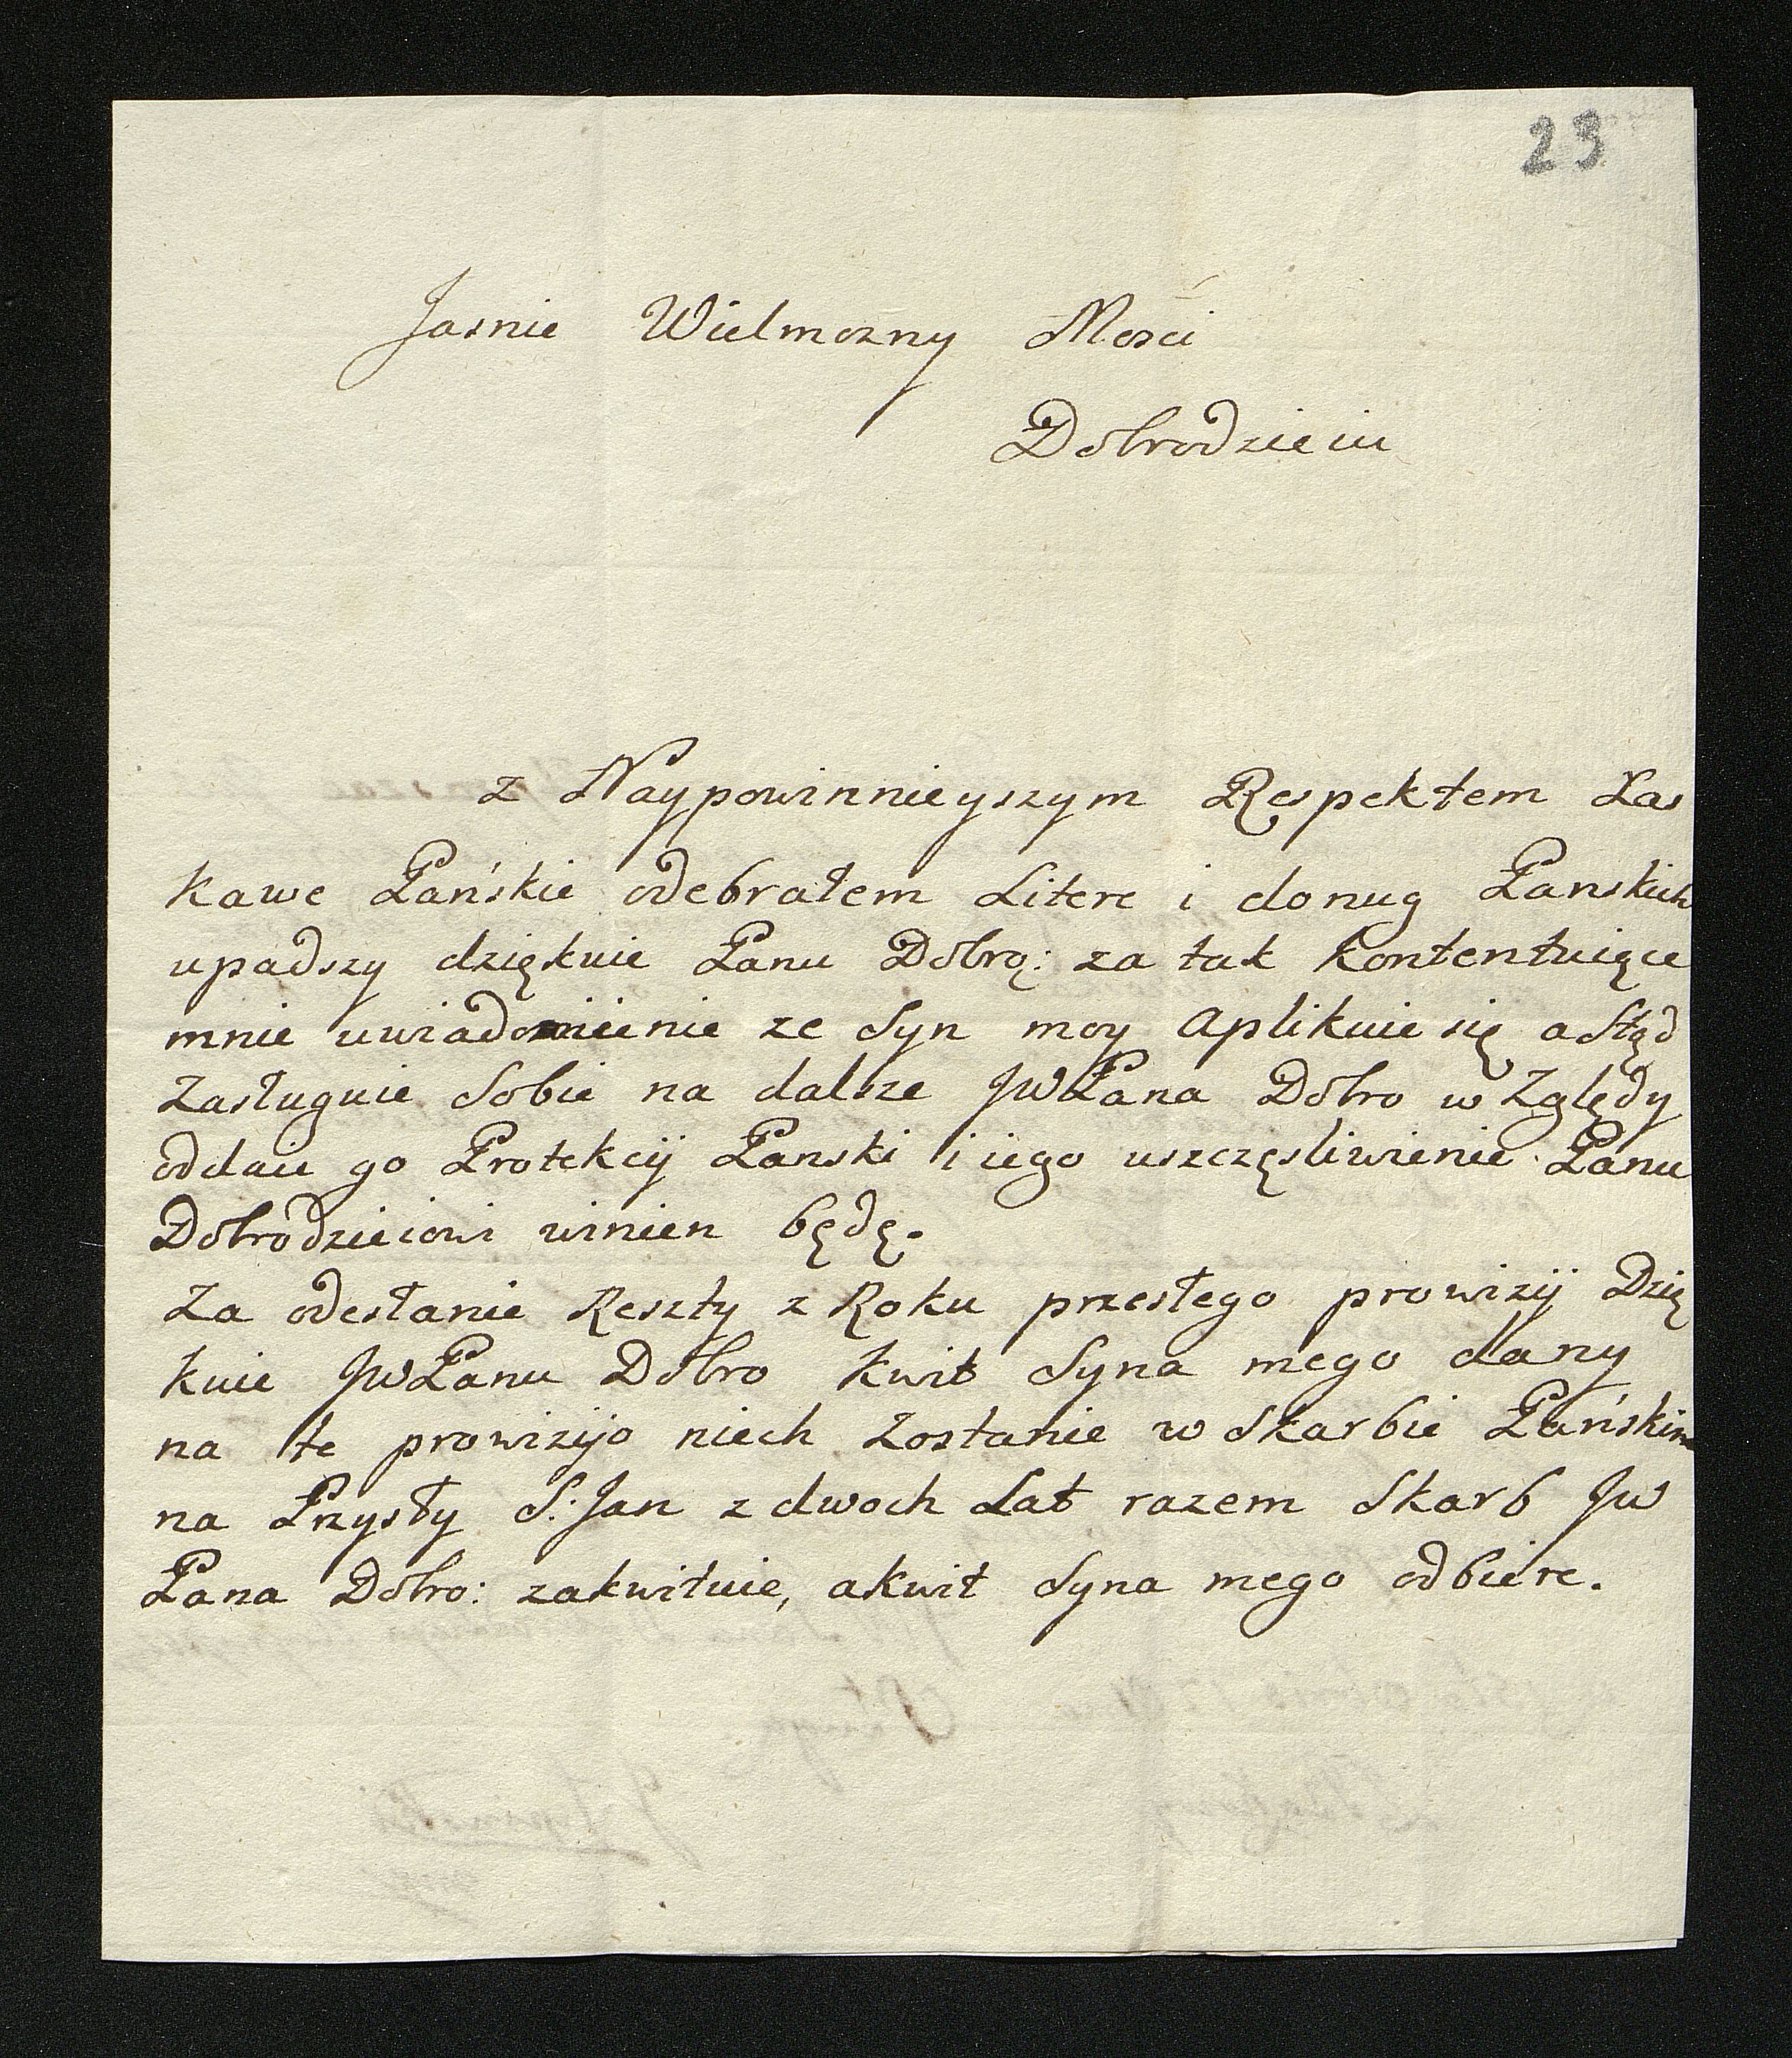 23
Jasnie Wielmozny Mosci
Dobrodzieiu
z Naypowinnieyszym Respektem Łas
kawe Pańskie odebrałem Litere i donug Panskich
upadszy dziękuie Panu Dobro: za tak kontentuiące
mnie uwiadomienie ze Syn moy aplikuie się a Stąd
Zasługuie Sobie na dalsze JWPana Dobro w Zględy
oddaie go Protekcij Panski i iego uszczęsliwienie Panu
Dobrodzieiowi winien będę.
Za odesłanie Reszty z Roku przesłego prowizij Dzię
kuie JWPanu Dobro kwit Syna mego dany
na te prowizijo niech Zostanie w Skarbie Pańskim
na Przysły S: Jan z dwoch Lat razem Skarb JW
Pana Dobro: zakwituie, a kwit Syna mego odbiere.